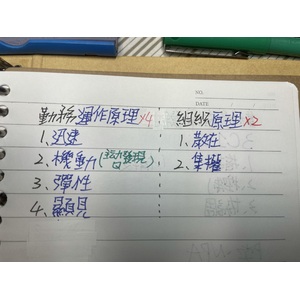 NO.
DATE
勤務運作原理×4
1.迅速
2.機動(主動發現)
3.彈性
4.顯見
組織原理×2
1.散在
2.集權